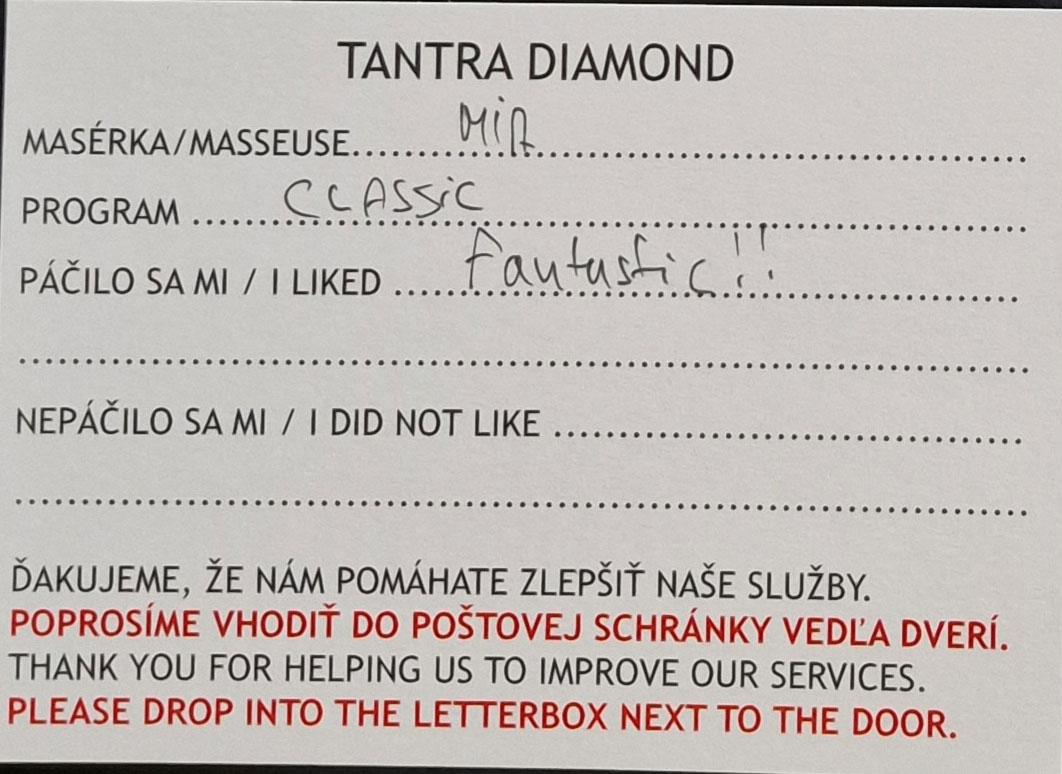 TANTRA DIAMOND
MASÉRKA/MASSEUSE.......MiA.......
PROGRAM .......CLASSiC.......
PÁČILO SA MI / I LIKED .......Fantastic!!.......
.......
NEPÁČILO SA MI / I DID NOT LIKE .......
.......
ĎAKUJEME, ŽE NÁM POMÁHATE ZLEPŠIŤ NAŠE SLUŽBY.
POPROSÍME VHODIŤ DO POŠTOVEJ SCHRÁNKY VEDĽA DVERÍ.
THANK YOU FOR HELPING US TO IMPROVE OUR SERVICES.
PLEASE DROP INTO THE LETTERBOX NEXT TO THE DOOR.